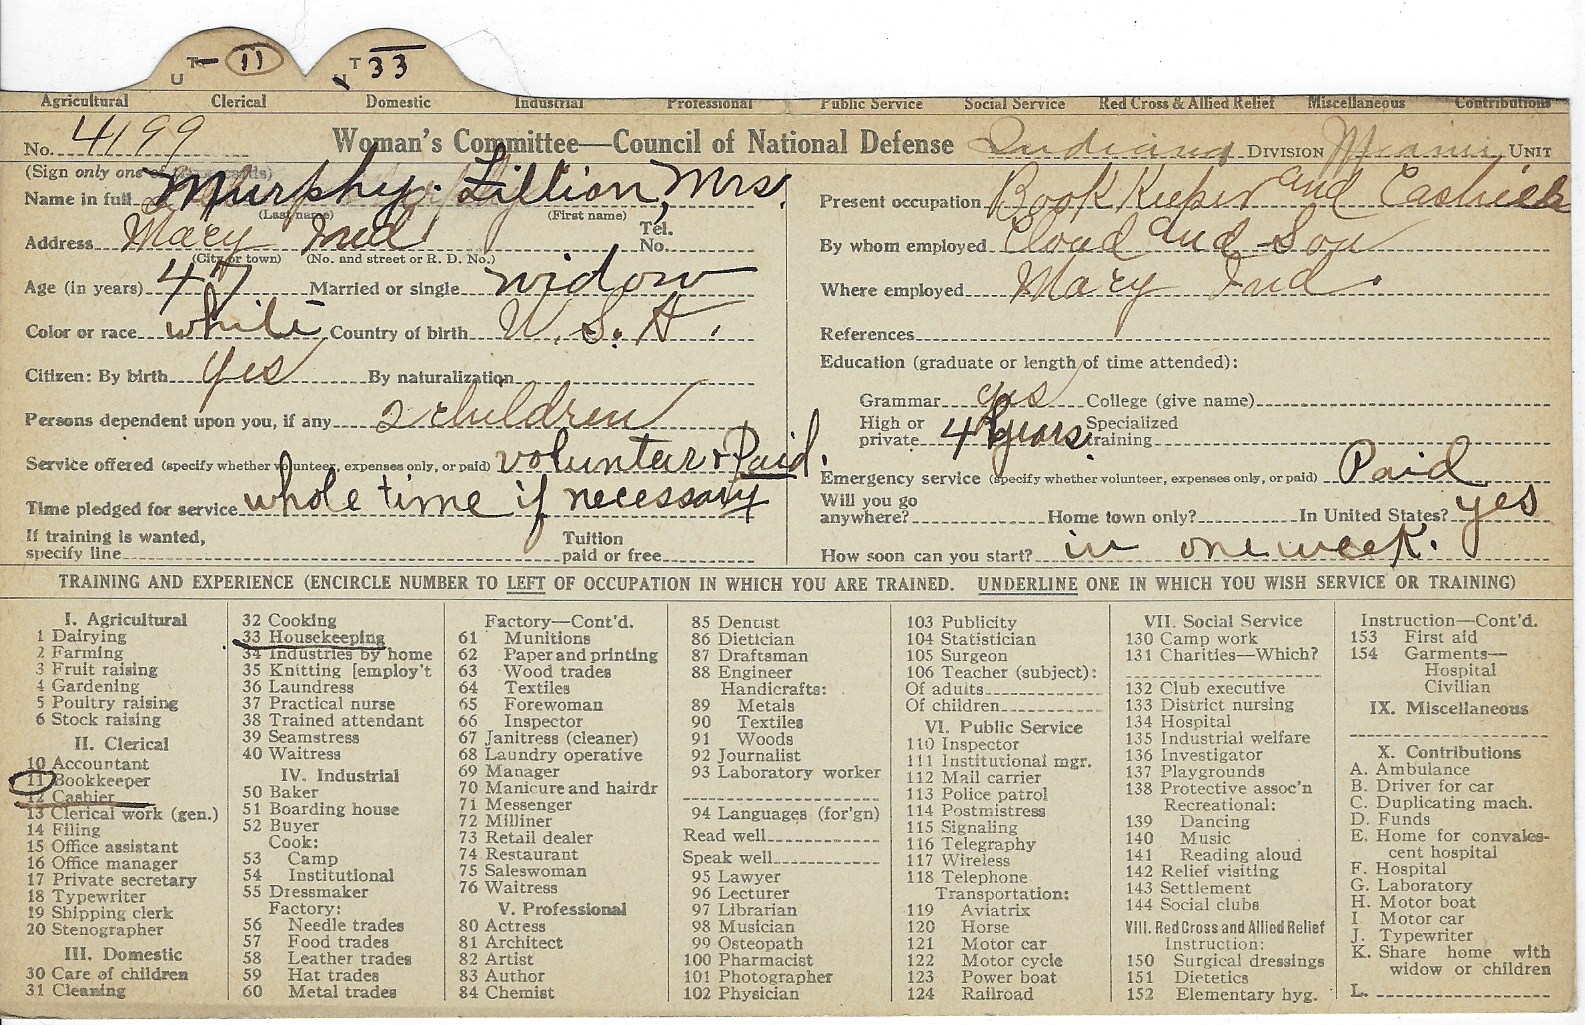 T 11 T 33
U U
Agricultural Clerical Domestic Industrial Professional Public Service Social Service Red Cross & Allied Relief Miscellaneous Contributions
No. 4199 Woman's Committee—Council of National Defense Indiana DIVISION Miami UNIT
(Sign only one of these cards)
Name in full Murphy. Lillion, Mrs.
(Last name) (First name)
Address Macy Ind Tel. No.
(City or town) (No. and street or R. D. No.)
Age (in years) 47 Married or single widow
Color or race white Country of birth U. S. A.
Citizen: By birth yes By naturalization
Persons dependent upon you, if any 2 children
Service offered (specify whether volunteer, expenses only, or paid) volunteer & Paid.
Time pledged for service whole time if necessary
If training is wanted, specify line Tuition paid or free
Present occupation Book Keeper and Cashier
By whom employed Cloud and Son
Where employed Macy Ind.
References
Education (graduate or length of time attended):
Grammar yes College (give name)
High or private 4 years. Specialized training
Emergency service (specify whether volunteer, expenses only, or paid) Paid
Will you go anywhere? Home town only? In United States? yes
How soon can you start? in one week.
TRAINING AND EXPERIENCE (ENCIRCLE NUMBER TO LEFT OF OCCUPATION IN WHICH YOU ARE TRAINED. UNDERLINE ONE IN WHICH YOU WISH SERVICE OR TRAINING)
I. Agricultural
1 Dairying
2 Farming
3 Fruit raising
4 Gardening
5 Poultry raising
6 Stock raising
II. Clerical
10 Accountant
11 Bookkeeper
12 Cashier
13 Clerical work (gen.)
14 Filing
15 Office assistant
16 Office manager
17 Private secretary
18 Typewriter
19 Shipping clerk
20 Stenographer
III. Domestic
30 Care of children
31 Cleaning
32 Cooking
33 Housekeeping
34 Industries by home
35 Knitting [employ't
36 Laundress
37 Practical nurse
38 Trained attendant
39 Seamstress
40 Waitress
IV. Industrial
50 Baker
51 Boarding house
52 Buyer
Cook:
53 Camp
54 Institutional
55 Dressmaker
Factory:
56 Needle trades
57 Food trades
58 Leather trades
59 Hat trades
60 Metal trades
Factory—Cont'd.
61 Munitions
62 Paper and printing
63 Wood trades
64 Textiles
65 Forewoman
66 Inspector
67 Janitress (cleaner)
68 Laundry operative
69 Manager
70 Manicure and hairdr
71 Messenger
72 Milliner
73 Retail dealer
74 Restaurant
75 Saleswoman
76 Waitress
V. Professional
80 Actress
81 Architect
82 Artist
83 Author
84 Chemist
85 Dentist
86 Dietician
87 Draftsman
88 Engineer
Handicrafts:
89 Metals
90 Textiles
91 Woods
92 Journalist
93 Laboratory worker
94 Languages (for'gn)
Read well
Speak well
95 Lawyer
96 Lecturer
97 Librarian
98 Musician
99 Osteopath
100 Pharmacist
101 Photographer
102 Physician
103 Publicity
104 Statistician
105 Surgeon
106 Teacher (subject):
Of adults
Of children
VI. Public Service
110 Inspector
111 Institutional mgr.
112 Mail carrier
113 Police patrol
114 Postmistress
115 Signaling
116 Telegraphy
117 Wireless
118 Telephone
Transportation:
119 Aviatrix
120 Horse
121 Motor car
122 Motor cycle
123 Power boat
124 Railroad
VII. Social Service
130 Camp work
131 Charities—Which?
132 Club executive
133 District nursing
134 Hospital
135 Industrial welfare
136 Investigator
137 Playgrounds
138 Protective assoc'n
Recreational:
139 Dancing
140 Music
141 Reading aloud
142 Relief visiting
143 Settlement
144 Social clubs
VIII. Red Cross and Allied Relief
Instruction:
150 Surgical dressings
151 Dietetics
152 Elementary hyg.
Instruction—Cont'd.
153 First aid
154 Garments—
Hospital
Civilian
IX. Miscellaneous
X. Contributions
A. Ambulance
B. Driver for car
C. Duplicating mach.
D. Funds
E. Home for convales-
cent hospital
F. Hospital
G. Laboratory
H. Motor boat
I Motor car
J. Typewriter
K. Share home with
widow or children
L.